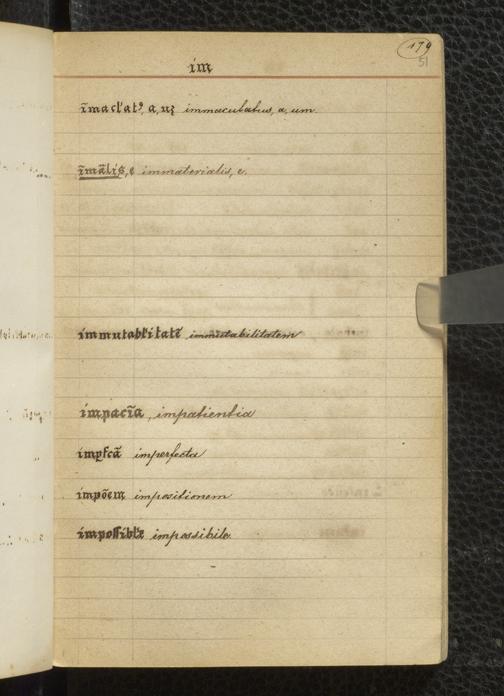 179
51
im
īmacl'atꝰ, a, uꝫ immaculatus, a, um.
īmāłis, e immaterialis, e.
immutabłitatē immutabilitatem
impacīa, impatientia
imꝑfcā imperfecta
impōeꝫ impositionem
impossiblꝫ impossibile.